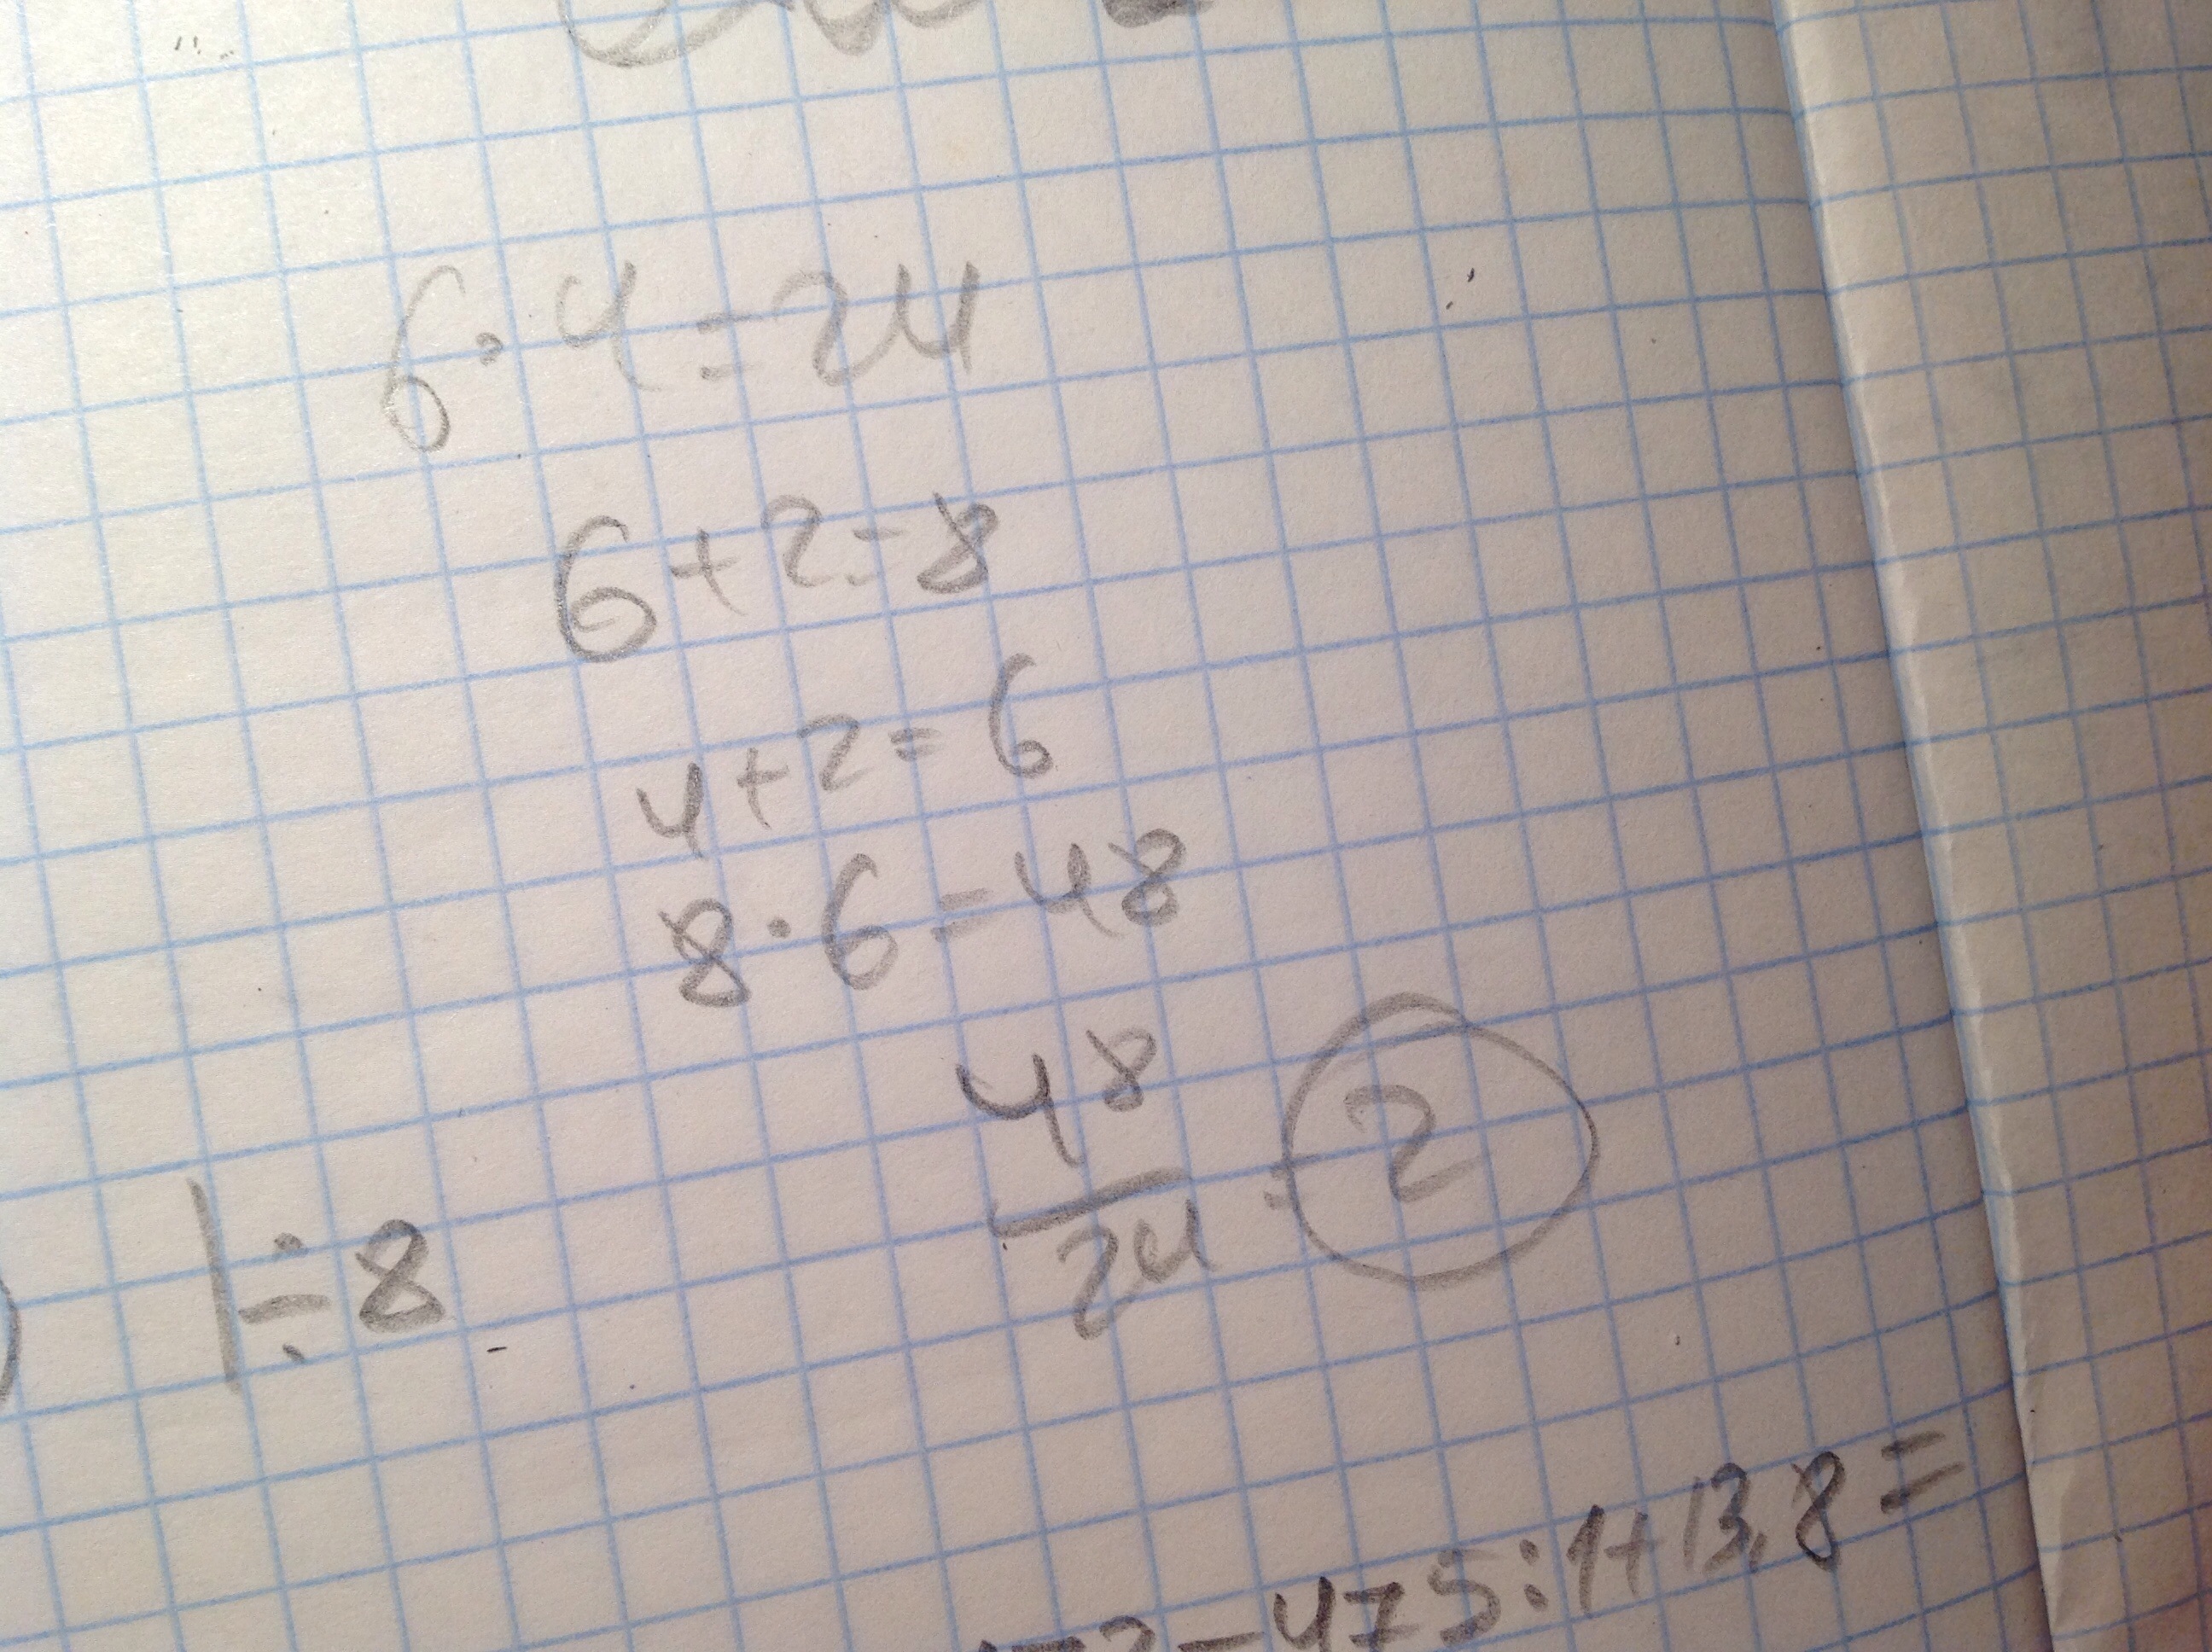 6·4=24
6+2=8
4+2=6
8·6=48
48
24
=2
1÷8
-475:1+13,8=